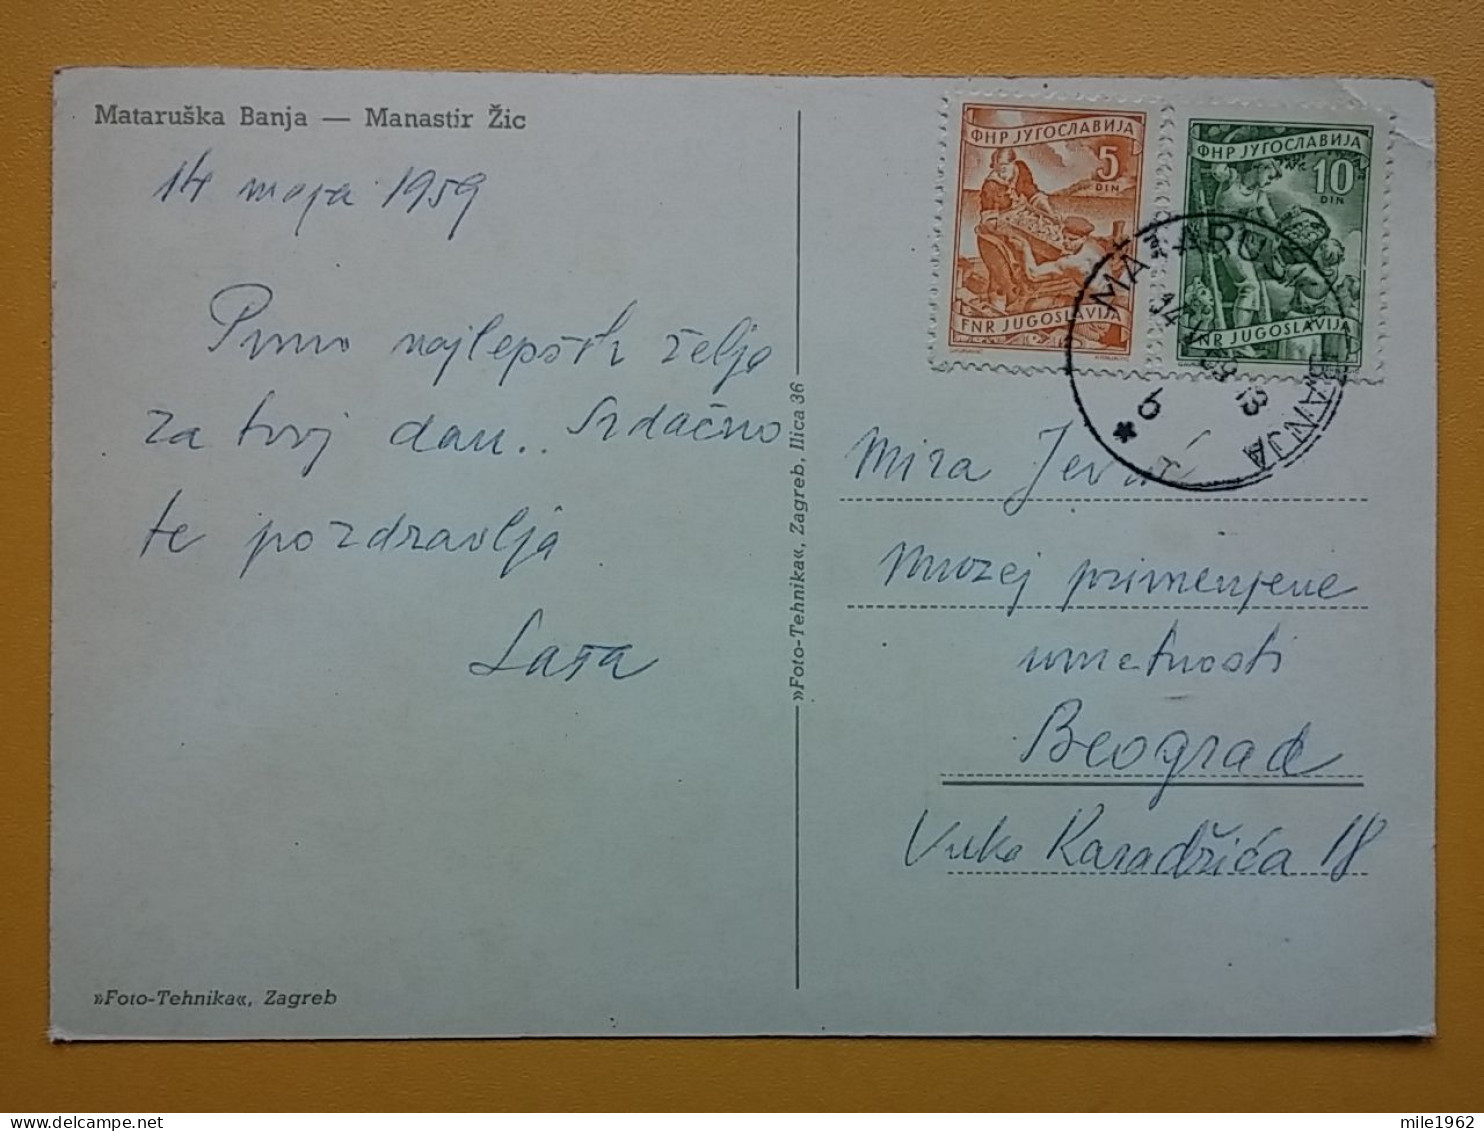 Mataruška Banja — Manastir Žic
14 maja 1959
Puno najlepših želja
za tvoj dan.. Srdačno
te pozdravlja
Lasa
»Foto-Tehnika«, Zagreb
»Foto-Tehnika«, Zagreb, Ilica 36
ФНР ЈУГОСЛАВИЈА
5
DIN
FNR JUGOSLAVIJA
ФНР ЈУГОСЛАВИЈА
10
DIN
FNR JUGOSLAVIJA
BANJA
Mira
Muzej primenjene
umetnosti
Beograd
Vuka Karadžića 18
mile1962